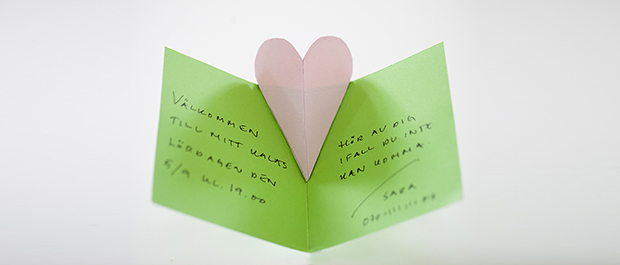 VÄLKOMMEN
TILL MITT KALAS
LÖRDAGEN DEN
6/9 KL. 19.00
HÖR AV DIG
IFALL DU INTE
KAN KOMMA.
SARA